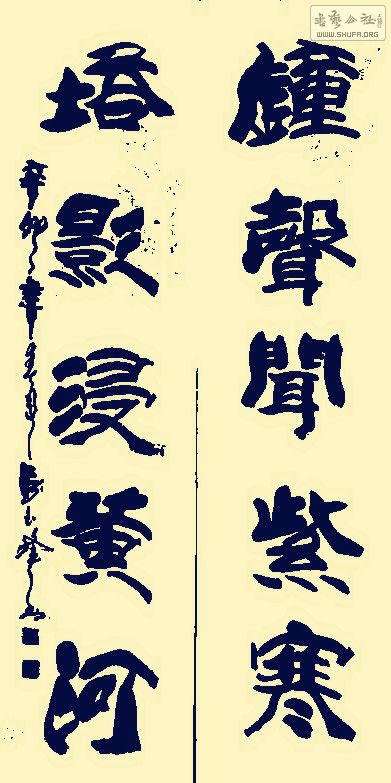 書法公社
WWW.SHUFA.ORG
鐘聲聞紫寒
塔影浸黄河
辛卯